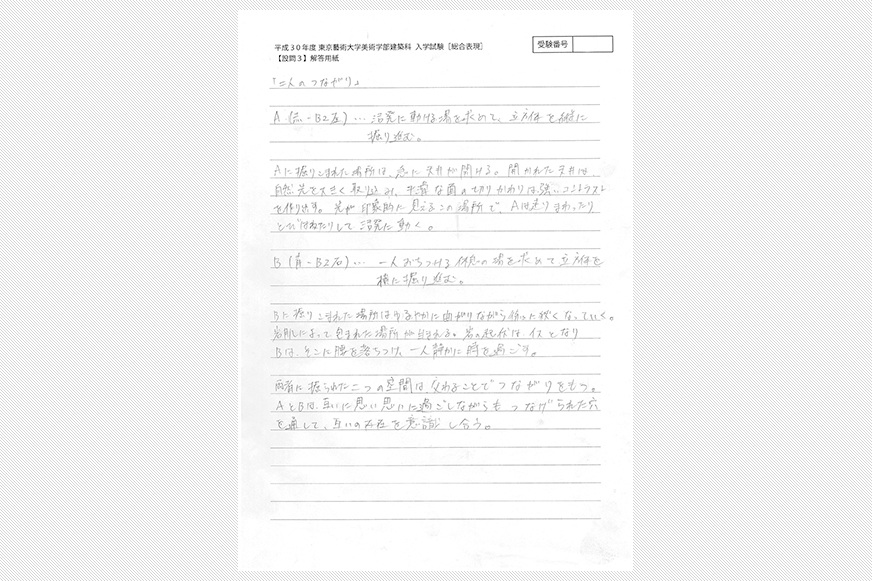 平成30年度 東京藝術大学美術学部建築科 入学試験［総合表現］
【設問3】解答用紙
受験番号
「二人のつながり」
A - B2左)… 活発に動ける場を求めて、立方体を縦に
掘り進む。
Aに掘りこまれた場所は、急に天井が開ける。開かれた天井は
自然光を大きく取り込み、平滑な面の切りかわりは強いコントラスト
を作り出す。光が印象的に見えるこの場所で、Aは走りまわったり
とびはねたりして活発に動く。
B (青-B2右)… 一人おちつける休憩の場を求めて立方体を
横に掘り進む。
Bに掘りこまれた場所はゆるやかに曲がりながら狭くなっていく。
岩肌によって包まれた場所が生まれる。岩の起伏は、イスとなり
Bは、そこに腰を落ちつけ、一人静かに時を過ごす。
両者に掘られた二つの空間は、交わることでつながりをもつ。
AとBは、互いに思い思いに過ごしながらも つなげられた穴
を通して、互いの存在を意識し合う。